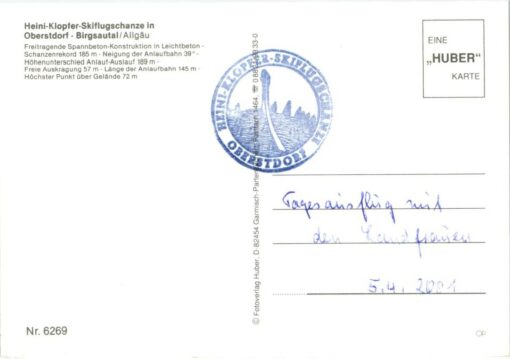 Heini-Klopfer-Skiflugschanze in
Oberstdorf - Birgsautal/Allgäu
Freitragende Spannbeton-Konstruktion in Leichtbeton -
Schanzenrekord 185 m - Neigung der Anlaufbahn 39° -
Höhenunterschied Anlauf-Auslauf 189 m -
Freie Auskragung 57 m - Länge der Anlaufbahn 145 m -
Höchster Punkt über Gelände 72 m
EINE
„HUBER"
KARTE
HEINI-KLOPFER-SKIFLUGSCHANZE
OBERSTDORF
© Fotoverlag Huber, D 82454 Garmisch-Parten
Tagesausflug mit
den Landfrauen
5.4. 2001
Nr. 6269